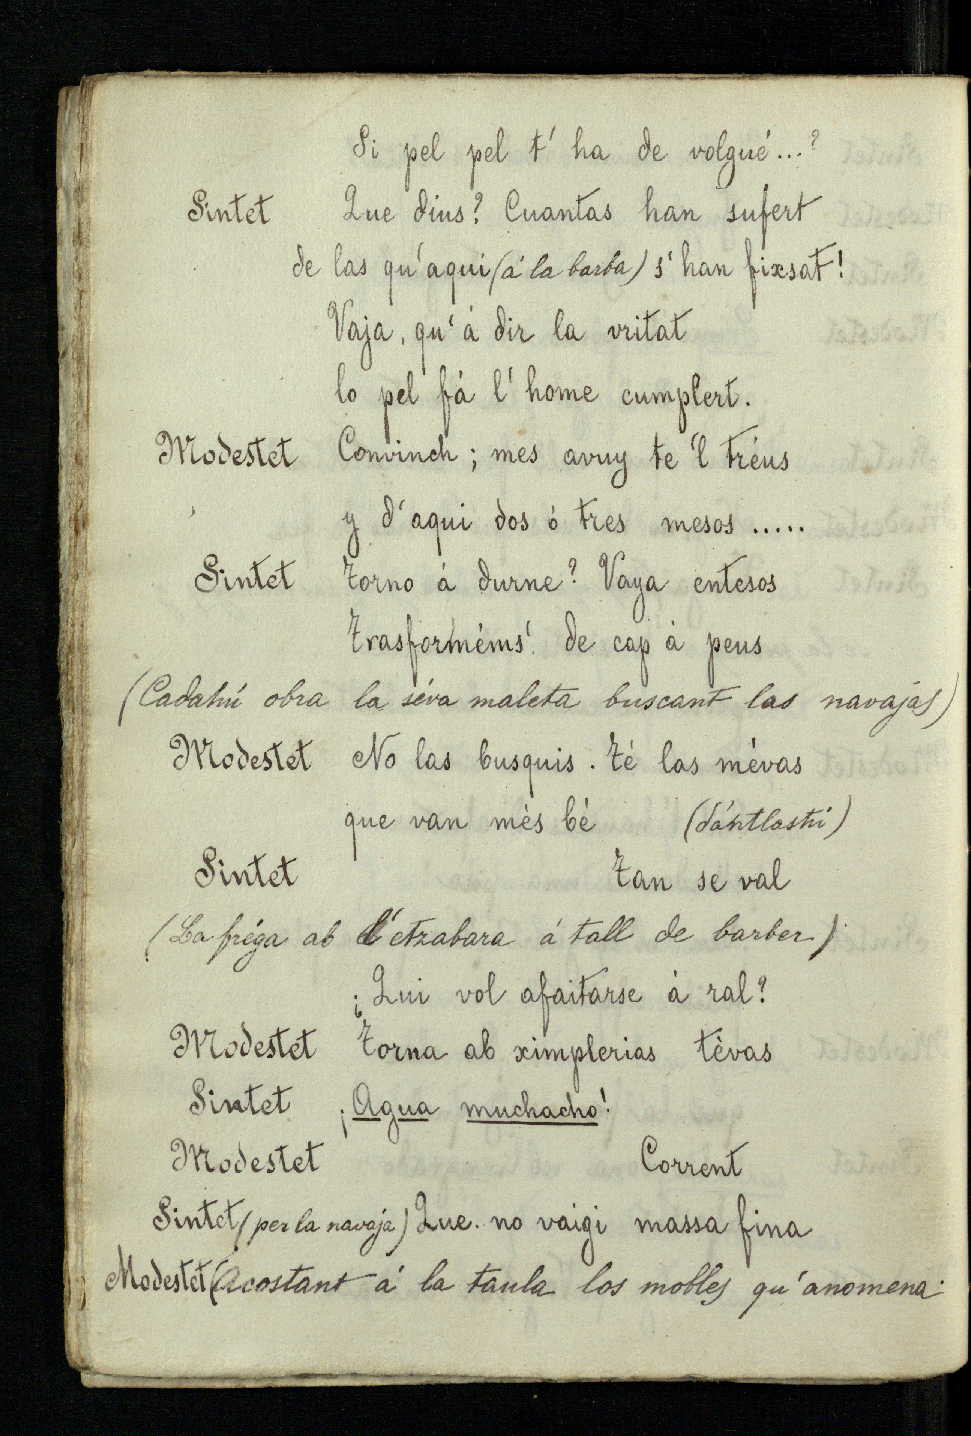 Si pel pel t' ha de volgué...?
Sintet Que dius? Cuantas han sufert
de las qu'aqui (á la barba) s'han fixsat!
Vaja, qu'á dir la vritat
lo pel fá l'home cumplert.
Modestet Convinch; mes avuy te'l tréus
y d'aqui dos ó tres mesos .....
Sintet Torno á durne? Vaya entesos
Trasforméms'. de cap á peus
(Cadahú obra la séva maleta buscant las navajas)
Modestet No las busquis. Té las mévas
que van més bé (dántlashi)
Sintet Tan se val
(La fréga ab l'etzabara á tall de barber)
¡Qui vol afaitarse á ral?
Modestet Torna ab ximplerias tévas
Sintet ¡Agua muchacho!
Modestet Corrent
Sintet (per la navaja) Que no vaigi massa fina
Modestet (Acostant á la taula los mobles qu'anomena.